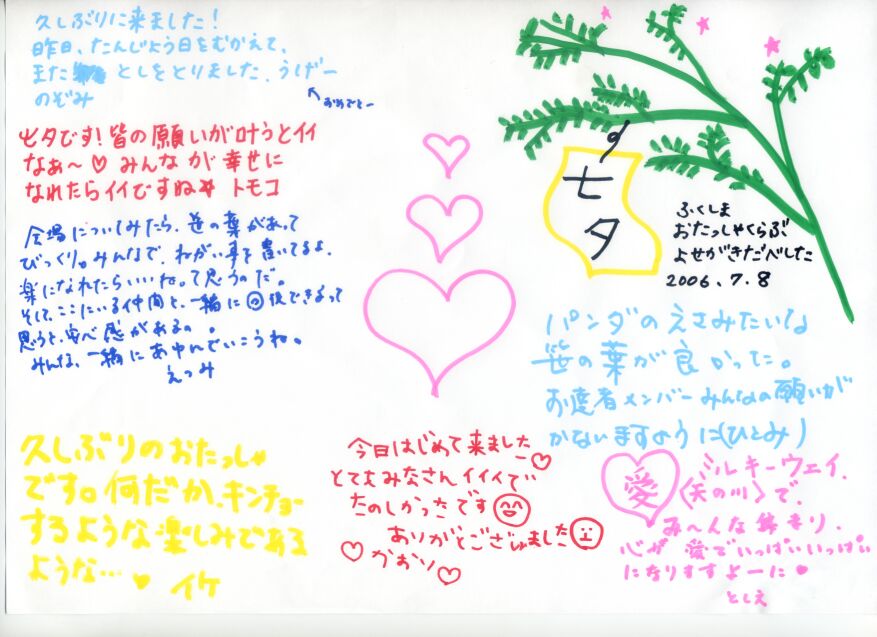 久しぶりに来ました!
昨日、たんじょう日をむかえて、
また としをとりました、うげー
のぞみ
おめでとー
七夕です!皆の願いが叶うとイイ
なぁ~♡ みんなが幸せに
なれたらイイですね トモコ
会場についてみたら、笹の葉があって
びっくり。みんなで、ねがい事を書いてるよ。
楽になれたらいいね。って思うのだ。
そして、ここにいる仲間と、一緒に 復できるって
思うと、安心感があるの。
みんな、一緒にあゆんでいこうね。
えつみ
七夕
ふくしま
おたっしゃくらぶ
よせがきだべした
2006.7.8
パンダのえさみたいな
笹の葉が良かった。
お達者メンバーみんなの願いが
かないますように(ひとみ)
久しぶりのおたっしゃ
です。何だか、キンチョー
するような楽しみである
ような…♥ イケ
今日はじめて来ました♡
とてもみなさんイイイで
たのしかったです
ありがとございました
♡かおり♡
愛
ミルキーウェイ、
〈天の川〉で、
み~んな 、
心が愛でいっぱいいっぱい
になりますよーに♥
としえ